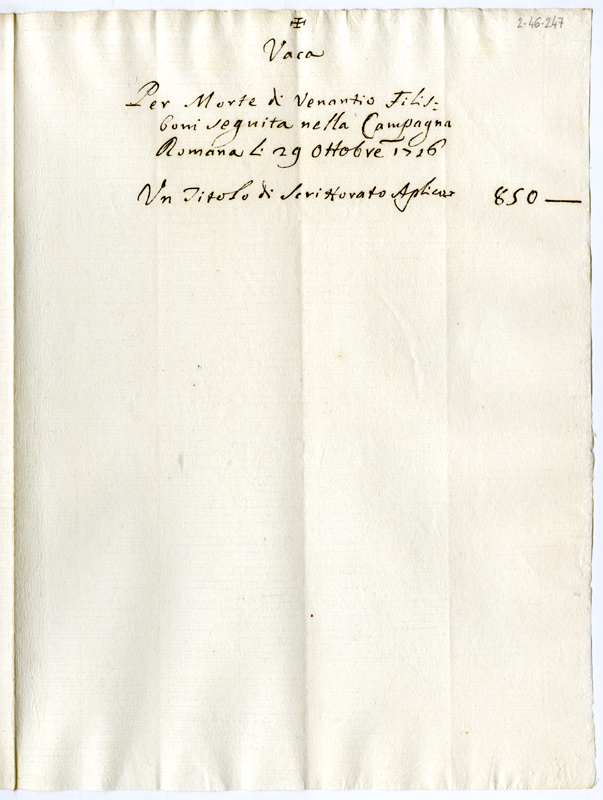 2-46-247
Vaca
Per Morte di Venantio Filis=
boni seguita nella Campagna
Romana li 29 Ottobre 1716
Un Titolo di Scrittorato Aplico 850 —